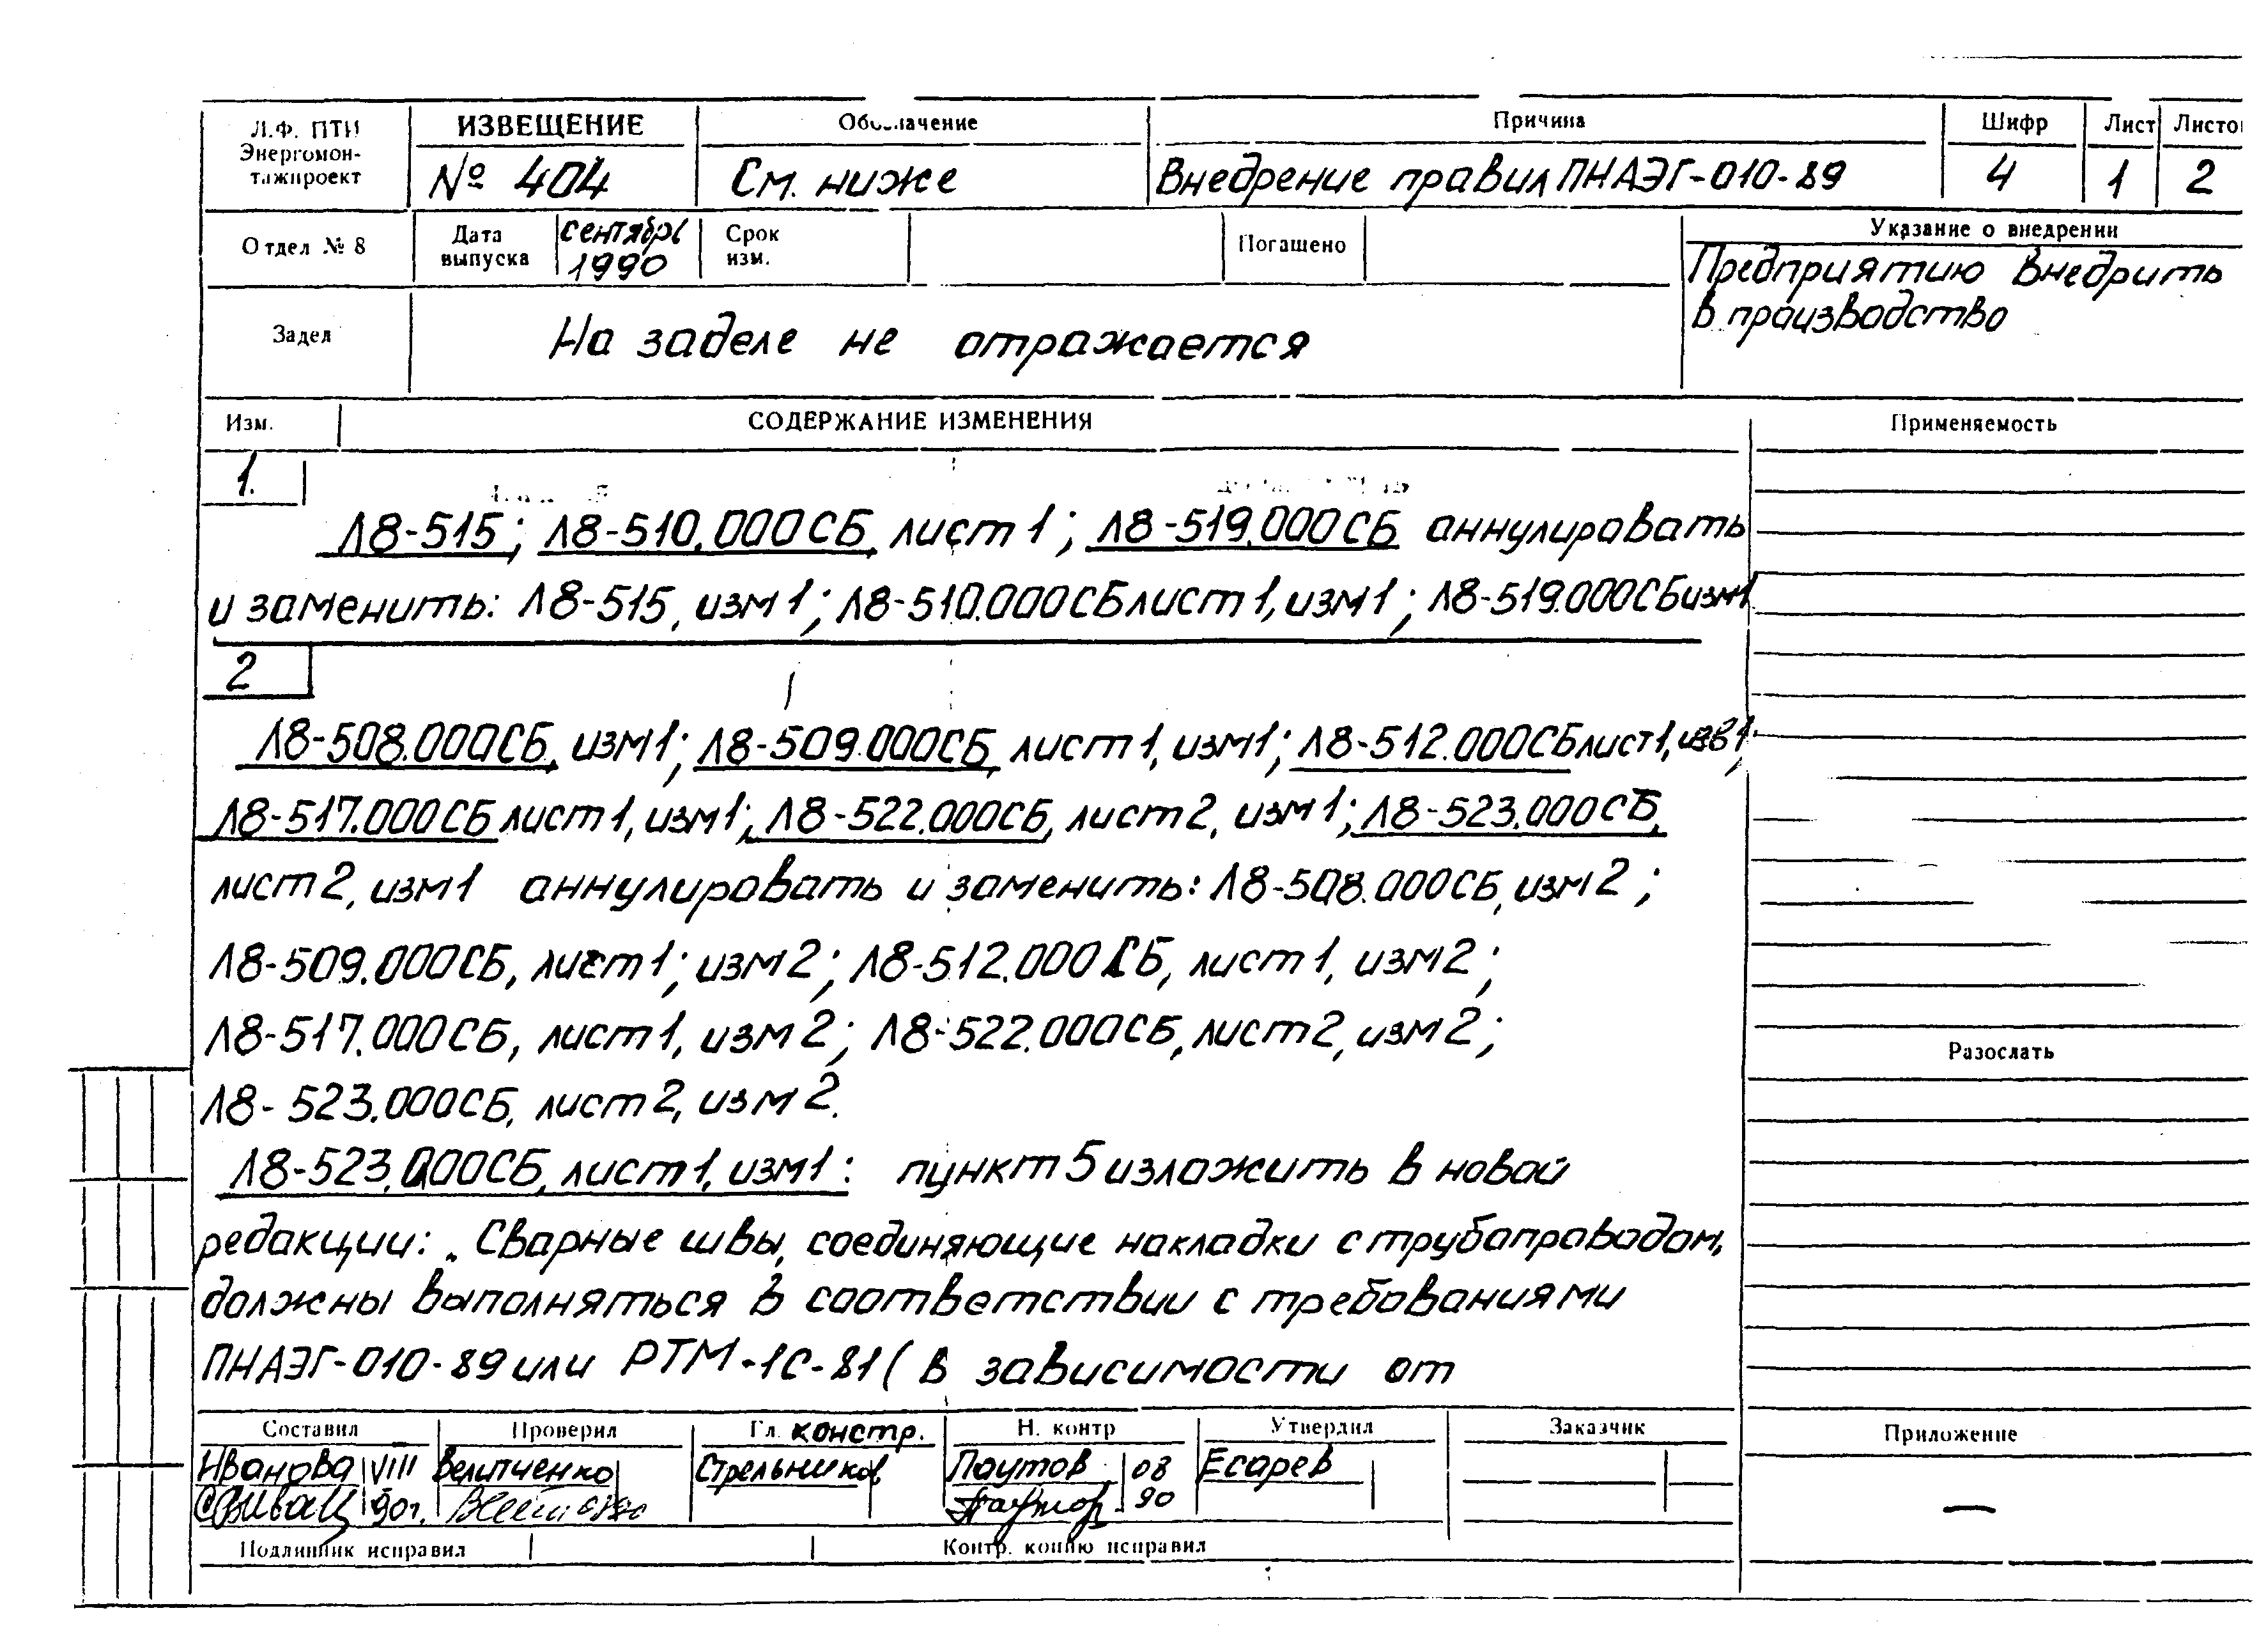 Л.Ф. ПТИ
Энергомон-
тажпроект
ИЗВЕЩЕНИЕ
№ 404
Обозначение
См. ниже
Причина
Внедрение правил ПНАЭГ-010-89
Шифр
4
Лист
1
Листо
2
Отдел № 8
Дата
выпуска
сентябрь
1990
Срок
изм.
Погашено
Указание о внедрении
Предприятию внедрить
в производство
Задел
На заделе не отражается
Изм.
СОДЕРЖАНИЕ ИЗМЕНЕНИЯ
Применяемость
1.
Л8-515; Л8-510.000СБ, лист 1; Л8-519.000СБ аннулировать
и заменить: Л8-515, изм 1; Л8-510.000СБ лист 1, изм 1; Л8-519.000СБ изм1
2
Л8-508.000СБ, изм1; Л8-509.000СБ, лист 1, изм1; Л8-512.000СБ лист1, изм1;
Л8-517.000СБ лист 1, изм1; Л8-522.000СБ, лист 2, изм 1; Л8-523.000СБ,
лист 2, изм 1 аннулировать и заменить: Л8-508.000СБ, изм 2;
Л8-509.000СБ, лист 1; изм 2; Л8-512.000СБ, лист 1, изм 2;
Л8-517.000СБ, лист 1, изм 2; Л8-522.000СБ, лист 2, изм 2;
Л8-523.000СБ, лист 2, изм 2.
Л8-523.000СБ, лист 1, изм 1: пункт 5 изложить в новой
редакции: „Сварные швы, соединяющие накладки с трубопроводом,
должны выполняться в соответствии с требованиями
ПНАЭГ-010-89 или РТМ-1С-81 (в зависимости от
Разослать
Составил
Проверил
Гл. констр.
Н. контр
Утвердил
Заказчик
Приложение
Иванова VIII
90г.
Велипченко
Стрельников
Паутов 08
90
Есарев
—
Подлинник исправил
Контр. копию исправил